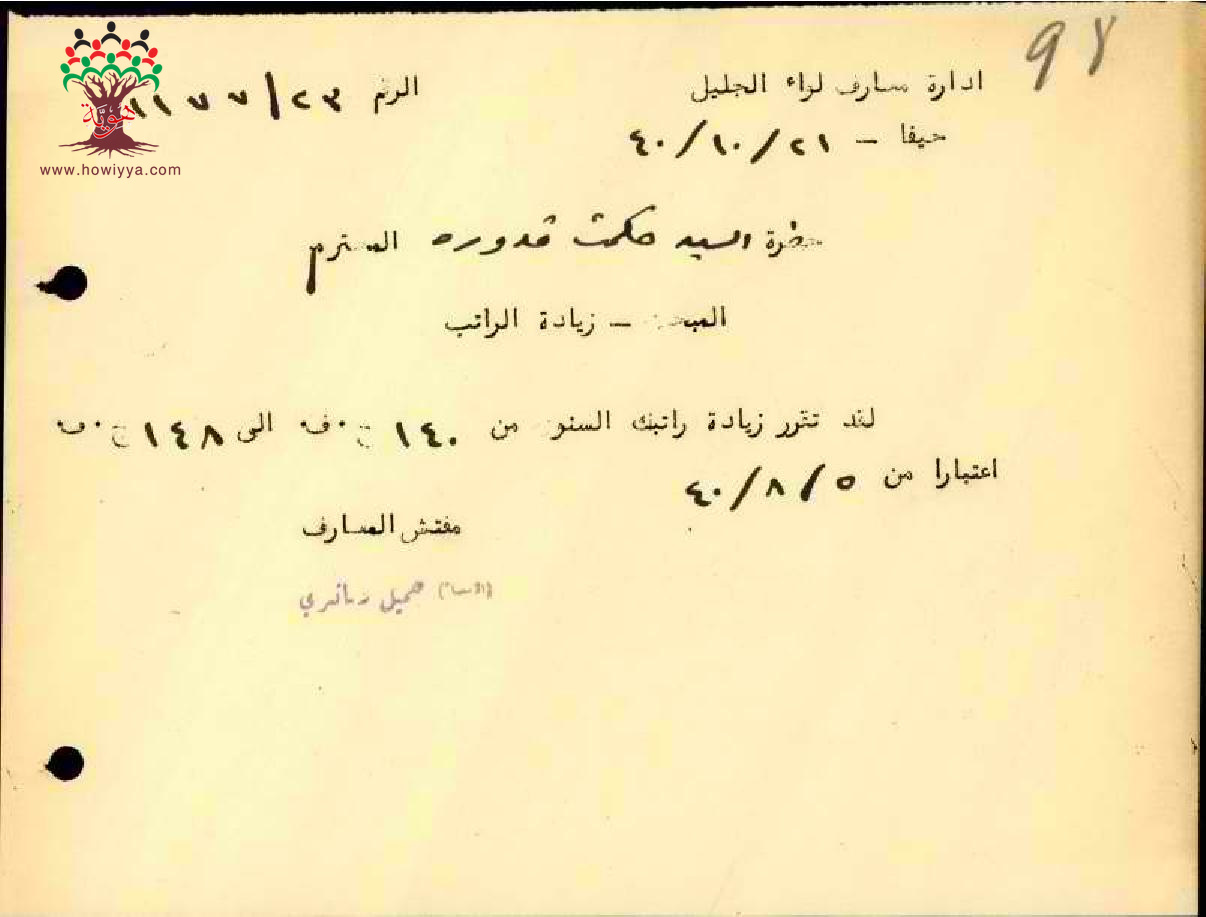 98
ادارة معارف لواء الجليل
الرقم ٢٣/١١٧٧
حيفا – ٢١/١٠/٤٠
حضرة السيد حكمت قدوره المحترم
المبحث – زيادة الراتب
لقد تقرر زيادة راتبك السنوي من ١٤٠ ج.ف. الى ١٤٨ ج.ف.
اعتبارا من ٤٠/٨/٥
مفتش المعارف
(الامضاء) جميل
هويّة
www.howiyya.com